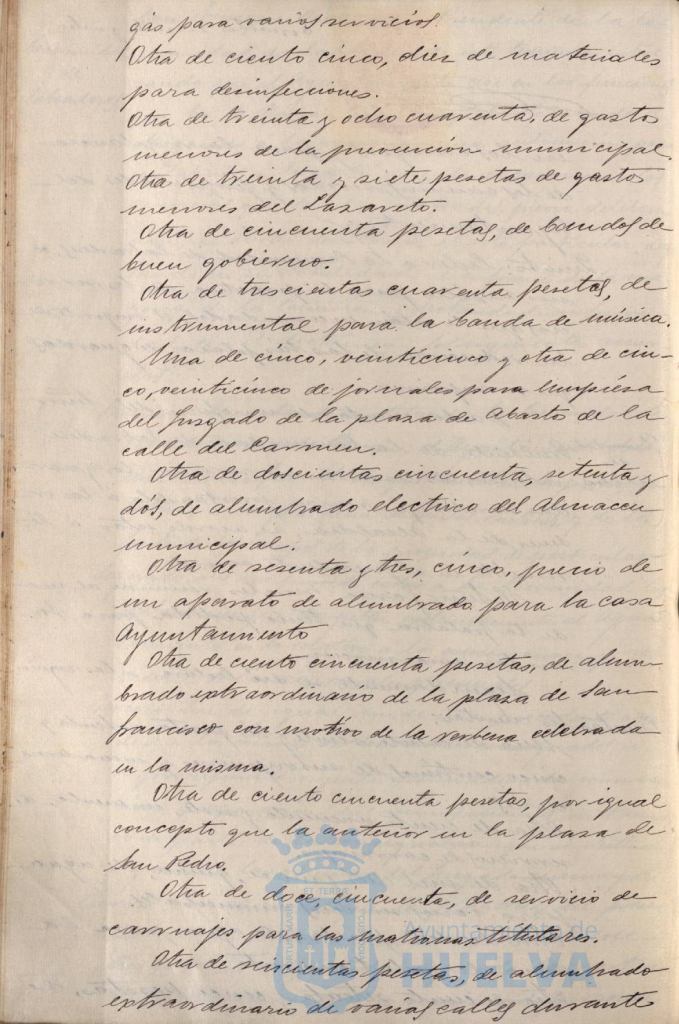 gas para varios servicios.
Otra de ciento cinco, diez de materiales
para desinfecciones.
Otra de treinta y ocho cuarenta, de gastos
menores de la prevención municipal.
Otra de treinta y siete pesetas de gastos
menores del Lazareto.
Otra de cincuenta pesetas, de bandos de
buen gobierno.
Otra de trescientas cuarenta pesetas, de
instrumental para la banda de música.
Una de cinco, veinticinco y otra de cin-
co, veinticinco de jornales para limpiesa
del Juzgado de la plaza de Abasto de la
calle del Carmen.
Otra de doscientas cincuenta, setenta y
dós, de alumbrado electrico del Almacen
municipal.
Otra de sesenta y tres, cinco, precio de
un aparato de alumbrado para la casa
Ayuntamiento
Otra de ciento cincuenta pesetas, de alum-
brado extraordinario de la plaza de San
Francisco con motivo de la verbena celebrada
en la misma.
Otra de ciento cincuenta pesetas, por igual
concepto que la anterior en la plaza de
San Pedro.
Otra de doce, cincuenta, de servicio de
carruajes para las matronas titulares.
Otra de seiscientas pesetas, de alumbrado
extraordinario de varias calles durante
Ayuntamiento de
HUELVA